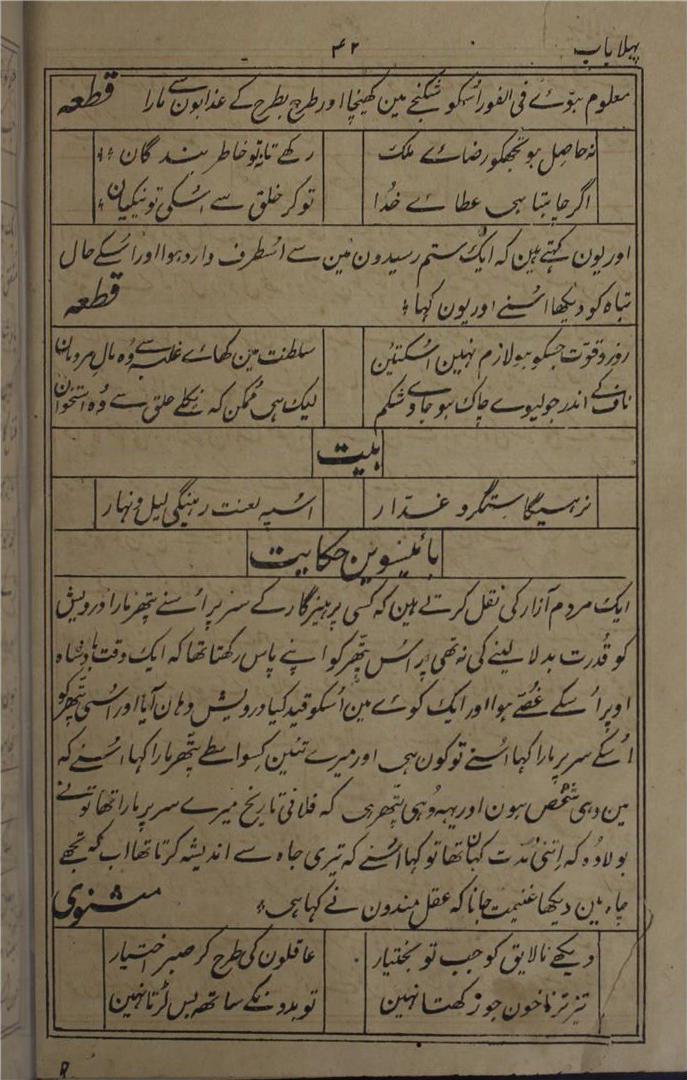 پہلا باب ۴۲
معلوم ہوئے فی الفور اُسکو شکنجے مین کھینچا اور طرح بطرح کے عذابون سے مارا قطعہ
نہ حاصل ہو تجھکو رضائے ملک رکھے تا نہ تو خاطر بندگان
اگر چاہتا ہی عطائے خدا تو کر خلق سے اُسکی تو نیکیان
اور یون کہتے ہین کہ ایک ستم رسیدون مین سے اُسطرف وارد ہوا اور اُسکے حال
تباہ کو دیکھا اُسنے اور یون کہا قطعہ
زور و قوت جسکو ہو لازم نہین اُسکتئین سلطنت مین کھائے غلبہ سے وہ مال مردمان
لیک ہی ممکن کہ نکلے حلق سے وہ استخوان ناف کے اندر جو لیوے چاک ہو جاوے شکم
بیت
نرہیگا ستمگر و غدّار اُسپہ لعنت رہیگی لیل و نہار
بائیسوین حکایت
ایک مردم آزار کی نقل کرتے ہین کہ کسی پرہیزگار کے سر پر اُسنے پتھر مارا درویش
کو قدرت بدلا لینے کی نہ تھی پر اُس پتھر کو اپنے پاس رکھتا تھا کہ ایک وقت بادشاہ
اوپر اُسکے غصّے ہوا اور ایک کوئے مین اُسکو قید کیا درویش وہان آیا اور اُسی پتھر کو
اُسکے سر پر مارا کہا اُسنے تو کون ہی اور میرے تئین کسواسطے پتھر مارا کہا اُسنے کہ
مین وہی شخص ہون اور یہہ وُہی پتھر ہی کہ فلانی تاریخ میرے سر پر مارا تھا تو نے
بولا وُہ کہ اِتنی مُدّت کہان تھا تو کہا اُسنے کہ تیری جاہ سے اندیشہ کرتا تھا اب کہ تجھے
چاہ مین دیکھا غنیمت جانا کہ عقلمندون نے کہا ہی مثنوی
دیکھے نالایق کو جب تو بختیار عاقلون کی طرح کر صبر اختیار
تیز تر ناخون جو رکھتا نہین تو بدونکے ساتھ بس لڑتا نہین